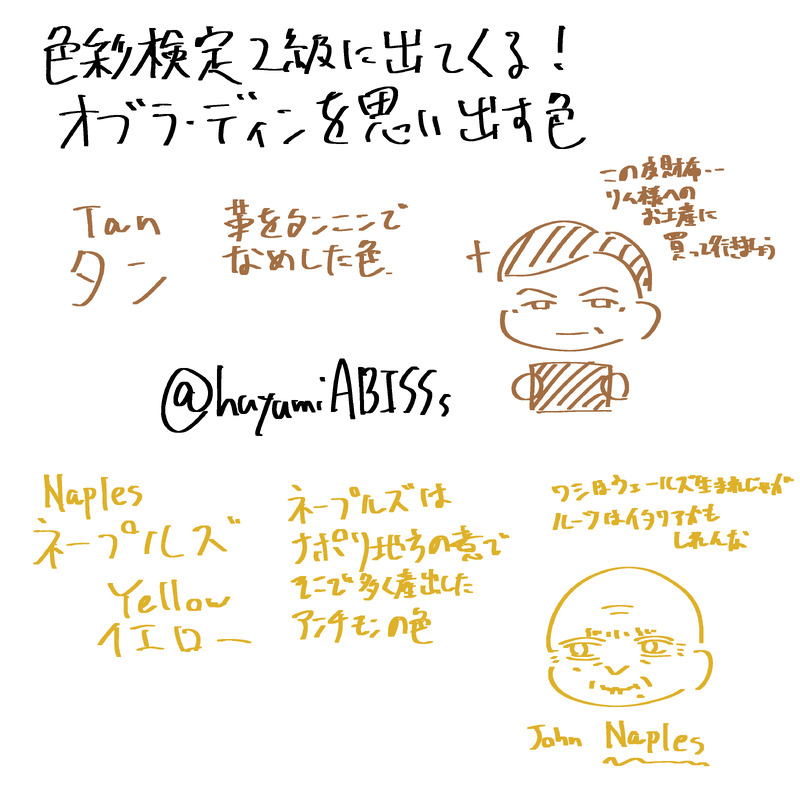 色彩検定2級に出てくる!
オブラ・ディンを思い出す色
Tan
タン
革をタンニンで
なめした色
この皮財布‥
リム様への
お土産に
買って行きましょう
@hayamiABISSs
Naples
ネープルズ
Yellow
イエロー
ネープルズは
ナポリ地方の意で
そこで多く産出した
アンチモンの色
ワシはウェールズ生まれじゃが
ルーツはイタリアかも
しれんな
John Naples